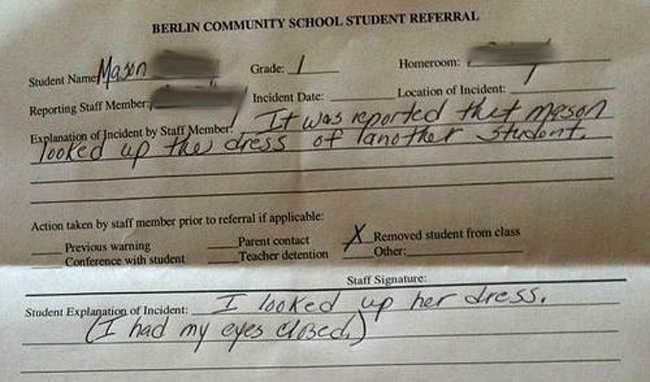 BERLIN COMMUNITY SCHOOL STUDENT REFERRAL
Student Name: Mason Grade: 1 Homeroom:
Reporting Staff Member: Incident Date: Location of Incident:
Explanation of Incident by Staff Member: It was reported that mason
looked up the dress of another student.
Action taken by staff member prior to referral if applicable:
Previous warning Parent contact X Removed student from class
Conference with student Teacher detention Other:
Staff Signature:
Student Explanation of Incident: I looked up her dress.
(I had my eyes closed)